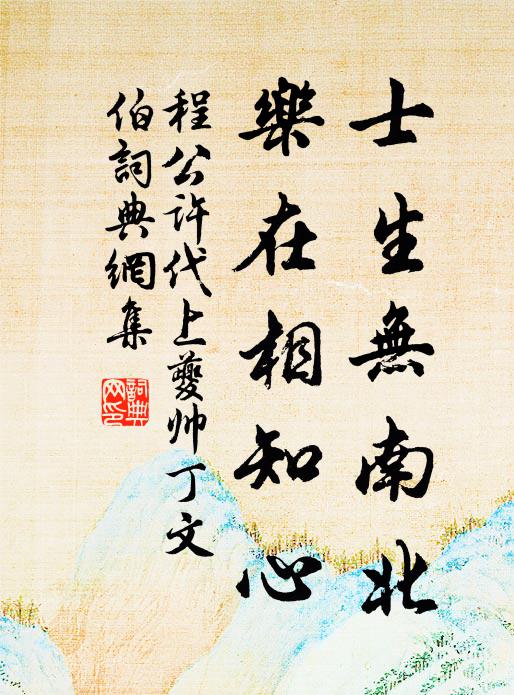 士生無南北
樂在相知心
程公許代上夔帅丁文
伯詞典網集
詞典
网印